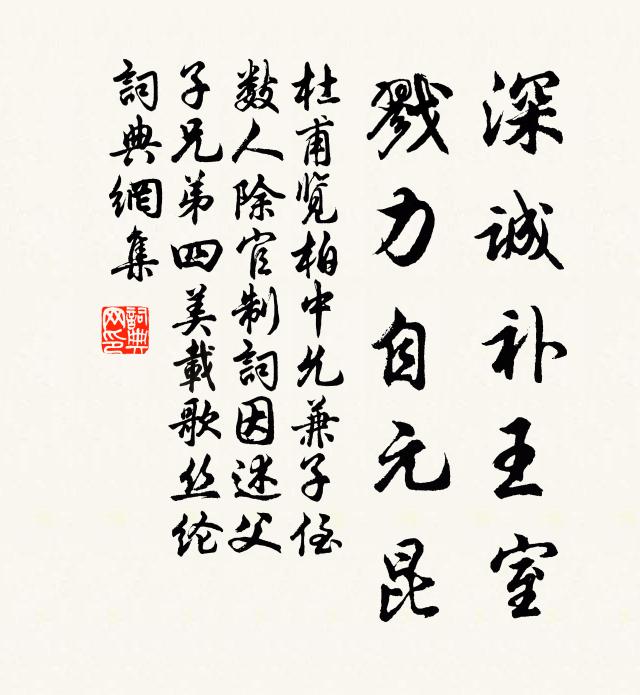 深诚补王室
戮力自元昆
杜甫览柏中允兼子侄
数人除官制詞因述父
子兄弟四美載歌丝纶
詞典網集
詞典
网印